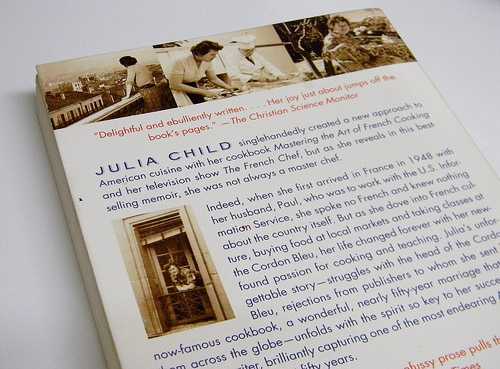 "Delightful and ebulliently written. . . . Her joy just about jumps off the
book's pages." —The Christian Science Monitor
JULIA CHILD singlehandedly created a new approach to
American cuisine with her cookbook Mastering the Art of French Cooking
and her television show The French Chef, but as she reveals in this best
selling memoir, she was not always a master chef.
Indeed, when she first arrived in France in 1948 with
her husband, Paul, who was to work with the U.S. Infor-
mation Service, she spoke no French and knew nothing
about the country itself. But as she dove into French cul-
ture, buying food at local markets and taking classes at
the Cordon Bleu, her life changed forever with her new-
found passion for cooking and teaching. Julia's unfor
gettable story—struggles with the head of the Cordo
Bleu, rejections from publishers to whom she sent
now-famous cookbook, a wonderful, nearly fifty-year marriage tha
across the globe—unfolds with the spirit so key to her succe
brilliantly capturing one of the most endearing
fifty years.
prose pulls th
Times